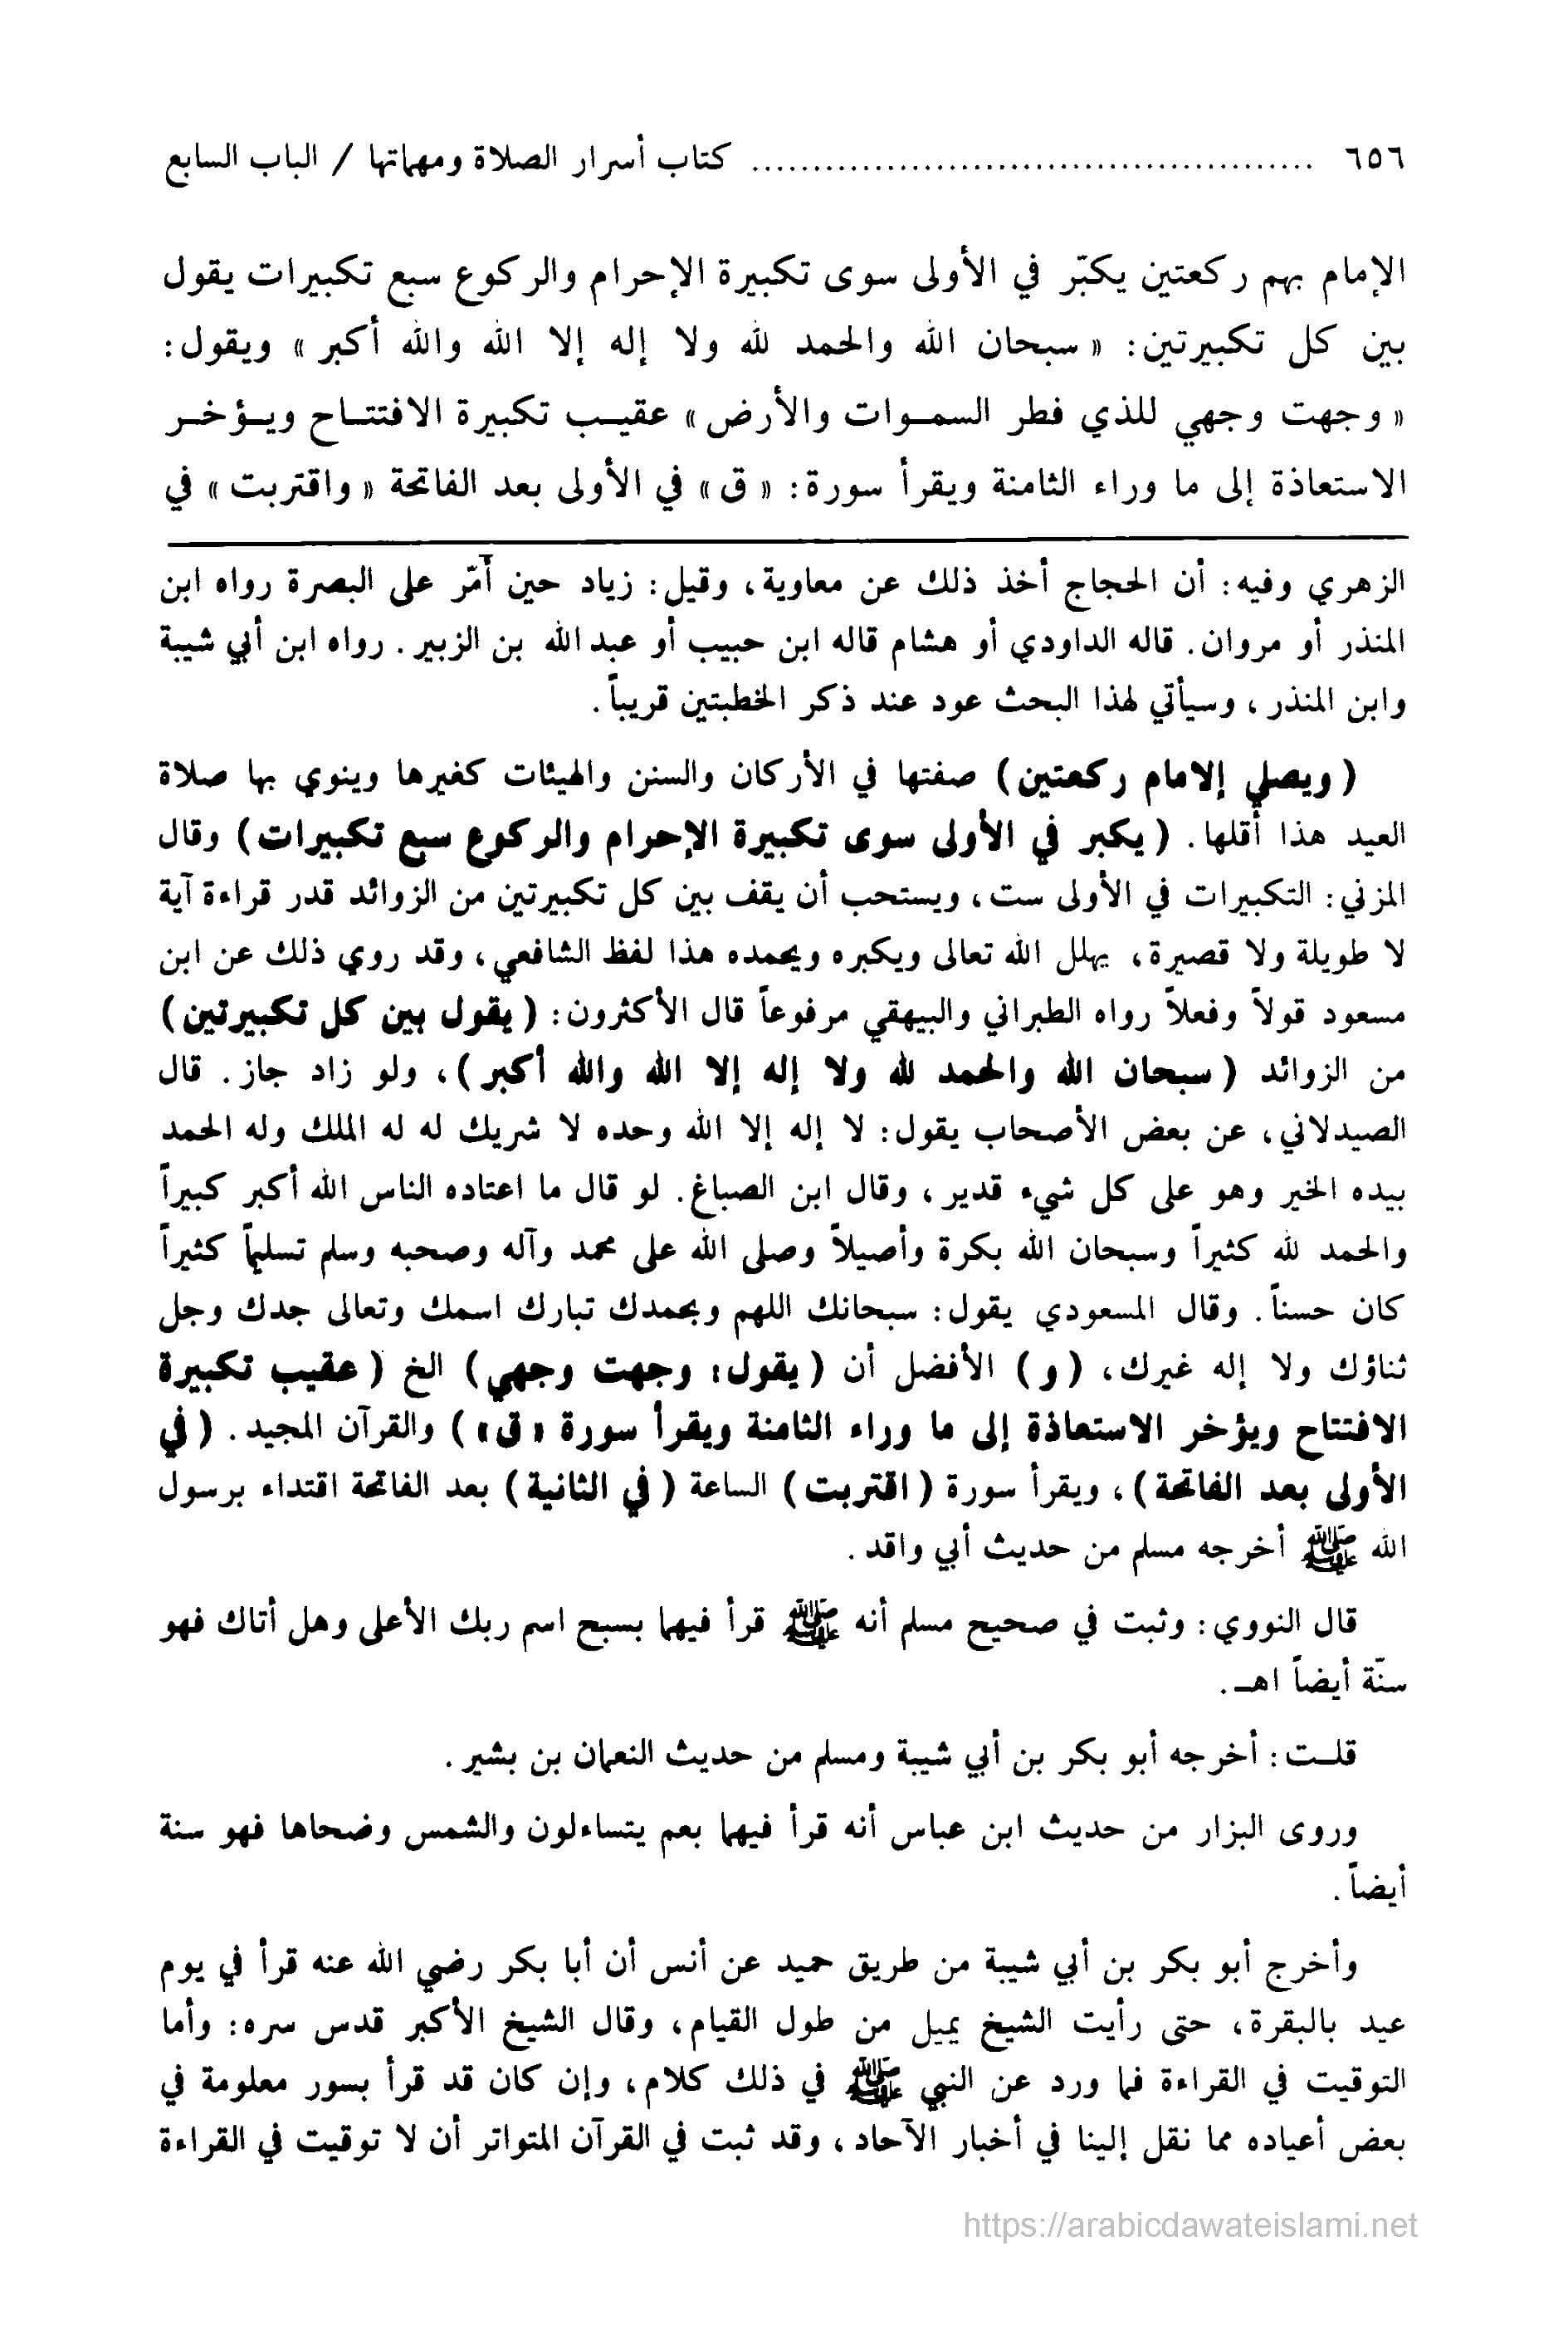 ٦٥٦ .............................................. كتاب أسرار الصلاة ومهماتها / الباب السابع
الإمام بهم ركعتين يكبّر في الأولى سوى تكبيرة الإحرام والركوع سبع تكبيرات يقول
بين كل تكبيرتين: « سبحان الله والحمد لله ولا إله إلا الله والله أكبر » ويقول:
« وجهت وجهي للذي فطر السمـوات والأرض » عقيـب تكبيرة الافتتـاح ويـؤخـر
الاستعاذة إلى ما وراء الثامنة ويقرأ سورة: « ق » في الأولى بعد الفاتحة « واقتربت » في
الزهري وفيه: أن الحجاج أخذ ذلك عن معاوية، وقيل: زياد حين أمّر على البصرة رواه ابن
المنذر أو مروان. قاله الداودي أو هشام قاله ابن حبيب أو عبد الله بن الزبير. رواه ابن أبي شيبة
وابن المنذر، وسيأتي لهذا البحث عود عند ذكر الخطبتين قريباً.
( ويصلي إلامام ركعتين ) صفتها في الأركان والسنن والهيئات كغيرها وينوي بها صلاة
العيد هذا أقلها. ( يكبر في الأولى سوى تكبيرة الإحرام والركوع سبع تكبيرات ) وقال
المزني: التكبيرات في الأولى ست، ويستحب أن يقف بين كل تكبيرتين من الزوائد قدر قراءة آية
لا طويلة ولا قصيرة، يهلل الله تعالى ويكبره ويحمده هذا لفظ الشافعي، وقد روي ذلك عن ابن
مسعود قولاً وفعلاً رواه الطبراني والبيهقي مرفوعاً قال الأكثرون: ( يقول بين كل تكبيرتين )
من الزوائد ( سبحان الله والحمد لله ولا إله إلا الله والله أكبر )، ولو زاد جاز. قال
الصيدلاني، عن بعض الأصحاب يقول: لا إله إلا الله وحده لا شريك له له الملك وله الحمد
بيده الخير وهو على كل شيء قدير، وقال ابن الصباغ. لو قال ما اعتاده الناس الله أكبر كبيراً
والحمد لله كثيراً وسبحان الله بكرة وأصيلاً وصلى الله على محمد وآله وصحبه وسلم تسليماً كثيراً
كان حسناً. وقال المسعودي يقول: سبحانك اللهم وبحمدك تبارك اسمك وتعالى جدك وجل
ثناؤك ولا إله غيرك، ( و ) الأفضل أن ( يقول: وجهت وجهي ) الخ ( عقيب تكبيرة
الافتتاح ويؤخر الاستعاذة إلى ما وراء الثامنة ويقرأ سورة « ق » ) والقرآن المجيد. ( في
الأولى بعد الفاتحة )، ويقرأ سورة ( اقتربت ) الساعة ( في الثانية ) بعد الفاتحة اقتداء برسول
الله ﷺ أخرجه مسلم من حديث أبي واقد.
قال النووي: وثبت في صحيح مسلم أنه ﷺ قرأ فيهما بسبح اسم ربك الأعلى وهل أتاك فهو
سنّة أيضاً اهـ.
قلـت: أخرجه أبو بكر بن أبي شيبة ومسلم من حديث النعمان بن بشير.
وروى البزار من حديث ابن عباس أنه قرأ فيهما بعم يتساءلون والشمس وضحاها فهو سنة
أيضاً.
وأخرج أبو بكر بن أبي شيبة من طريق حميد عن أنس أن أبا بكر رضي الله عنه قرأ في يوم
عيد بالبقرة، حتى رأيت الشيخ يميل من طول القيام، وقال الشيخ الأكبر قدس سره: وأما
التوقيت في القراءة فما ورد عن النبي ﷺ في ذلك كلام، وإن كان قد قرأ بسور معلومة في
بعض أعياده مما نقل إلينا في أخبار الآحاد، وقد ثبت في القرآن المتواتر أن لا توقيت في القراءة
https://arabicdawateislami.net